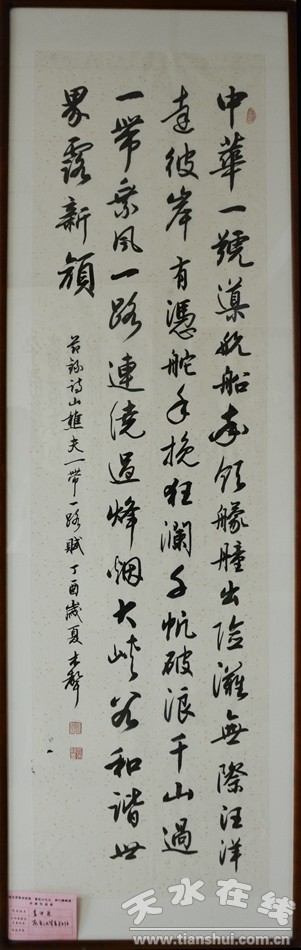 中華一號導航船率領艨艟出險灘無際汪洋
達彼岸有憑舵手挽狂瀾千帆破浪千山過
一帶乘風一路連繞過烽烟大峽谷和諧世
界露新顏
錄詩山樵夫一帶一路賦丁酉歲夏
天水在线
www.tianshui.com.cn